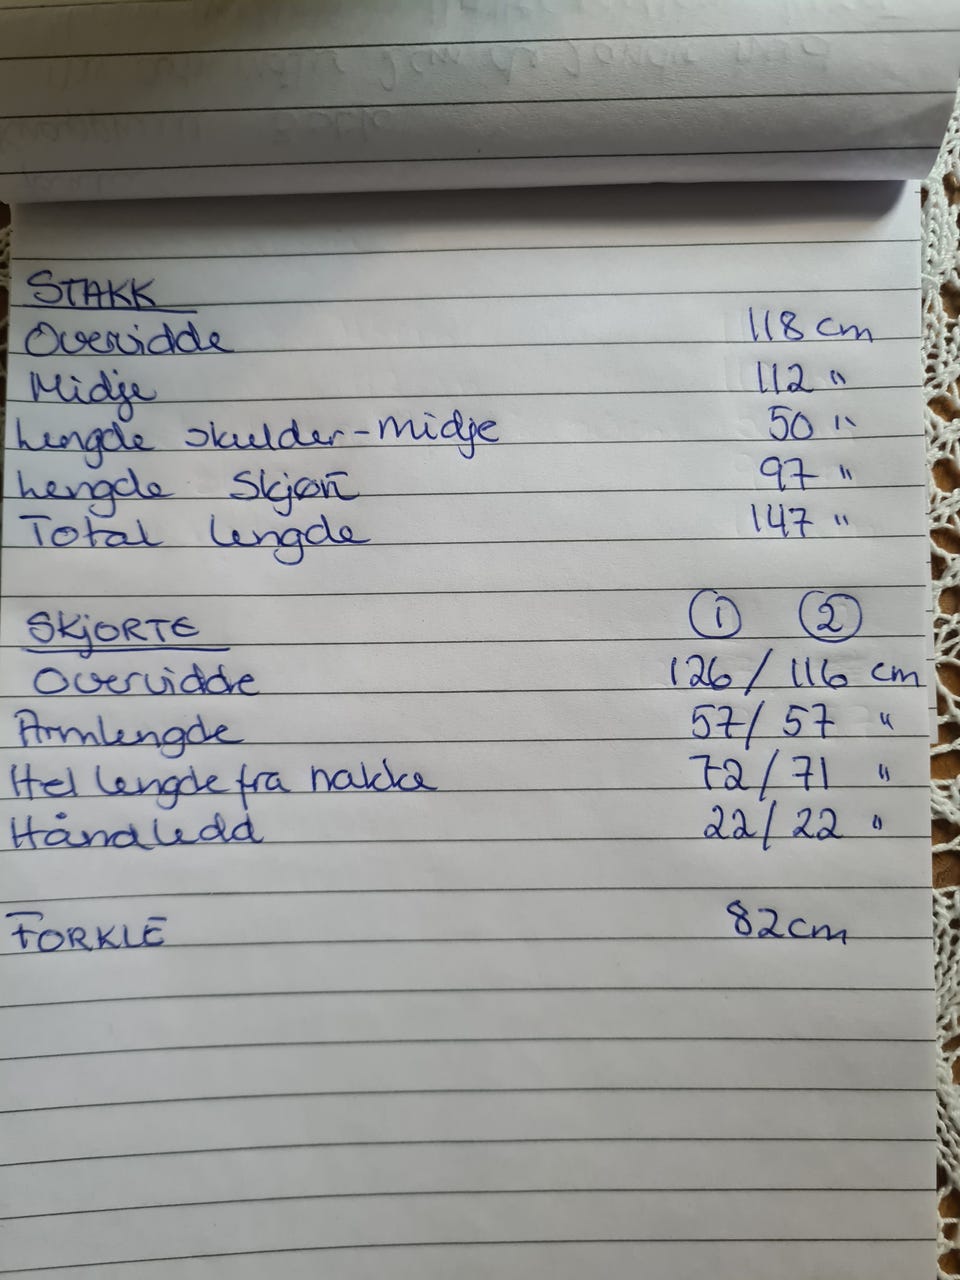 STAKK
Overvidde 118 cm
Midje 112 "
Lengde skulder-midje 50 "
Lengde Skjørt 97 "
Total lengde 147 "
SKjORTE 1 2
Overvidde 126 / 116 cm
Armlengde 57 / 57 "
Hel lengde fra nakke 72 / 71 "
Håndledd 22 / 22 "
FORKLE 82 cm